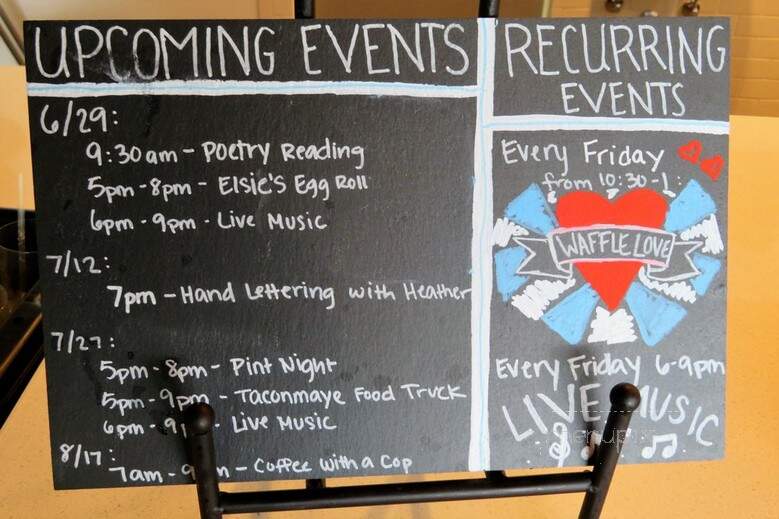 UPCOMING EVENTS
6/29:
9:30am - Poetry Reading
5pm - 8pm - Elsie's Egg Roll
6pm - 9pm - Live Music
7/12:
7pm - Hand Lettering with Heather
7/27:
5pm - 8pm - Pint Night
5pm - 9pm - Taconmaye Food Truck
6pm - 9pm - Live Music
8/17:
7am - 9am - Coffee with a Cop
RECURRING
EVENTS
Every Friday
from 10:30-1:
WAFFLE LOVE
Every Friday 6-9pm
LIVE MUSIC